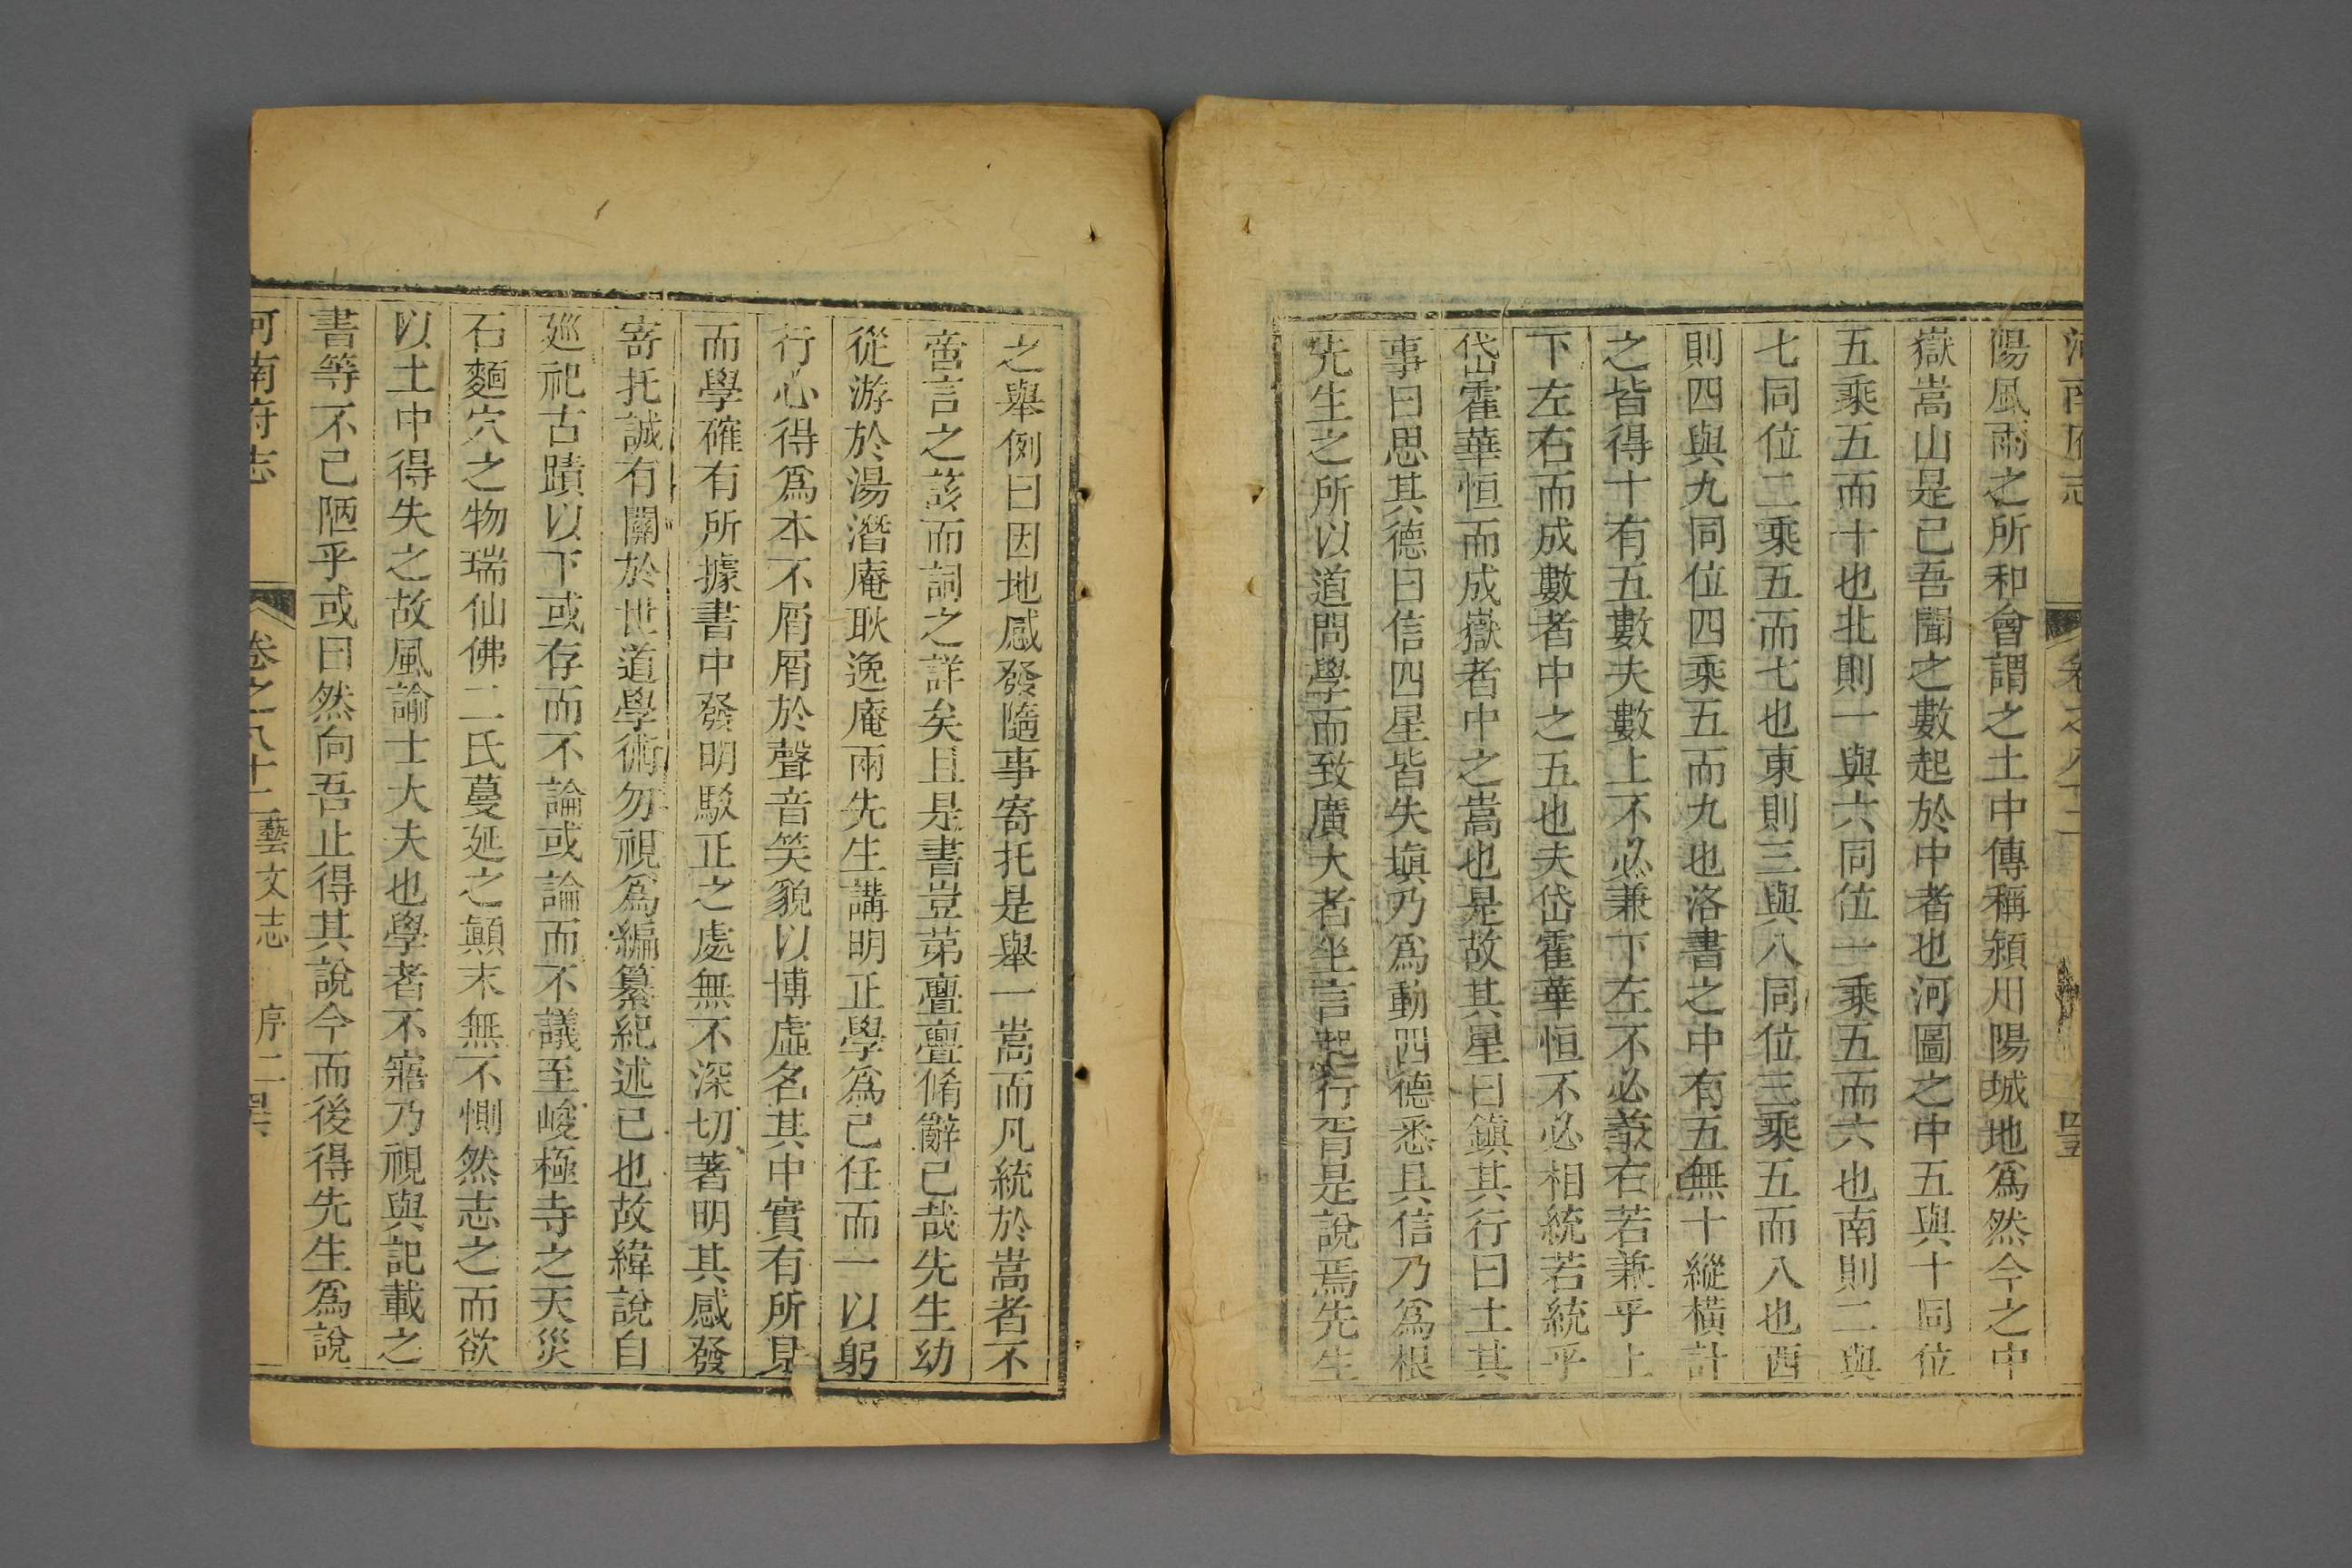 河南府志 卷之八十二 四十五
陽風雨之所和會謂之土中傳稱潁川陽城地爲然今之中
嶽嵩山是已吾聞之數起於中者也河圖之中五與十同位
五乘五而十也北則一與六同位一乘五而六也南則二與
七同位二乘五而七也東則三與八同位三乘五而八也西
則四與九同位四乘五而九也洛書之中有五無十縱橫計
之皆得十有五數夫數上不必兼下左不必兼右若兼乎上
下左右而成數者中之五也夫岱霍華恒不必相統若統乎
岱霍華恒而成嶽者中之嵩也是故其星曰鎮其行曰土其
事曰思其德曰信四星皆失塡乃爲動四德悉具信乃爲根
先生之所以道問學而致廣大者坐言起行胥是說焉先生
之舉例曰因地感發隨事寄托是舉一嵩而凡統於嵩者不
啻言之該而詞之詳矣且是書豈苐亹亹脩辭已哉先生幼
從游於湯潛庵耿逸庵兩先生講明正學爲己任而一以躬
行心得爲本不屑屑於聲音笑貌以博虛名其中實有所見
而學確有所據書中發明駁正之處無不深切著明其感發
寄托誠有關於世道學術勿視爲編纂紀述已也故緯說自
廵祀古蹟以下或存而不論或論而不議至峻極寺之天災
石麵穴之物瑞仙佛二氏蔓延之顚末無不惻然志之而欲
以土中得失之故風諭士大夫也學者不寤乃視與記載之
書等不已陋乎或曰然向吾止得其說今而後得先生爲說
河南府志 卷之八十二 藝文志 序二 四十六